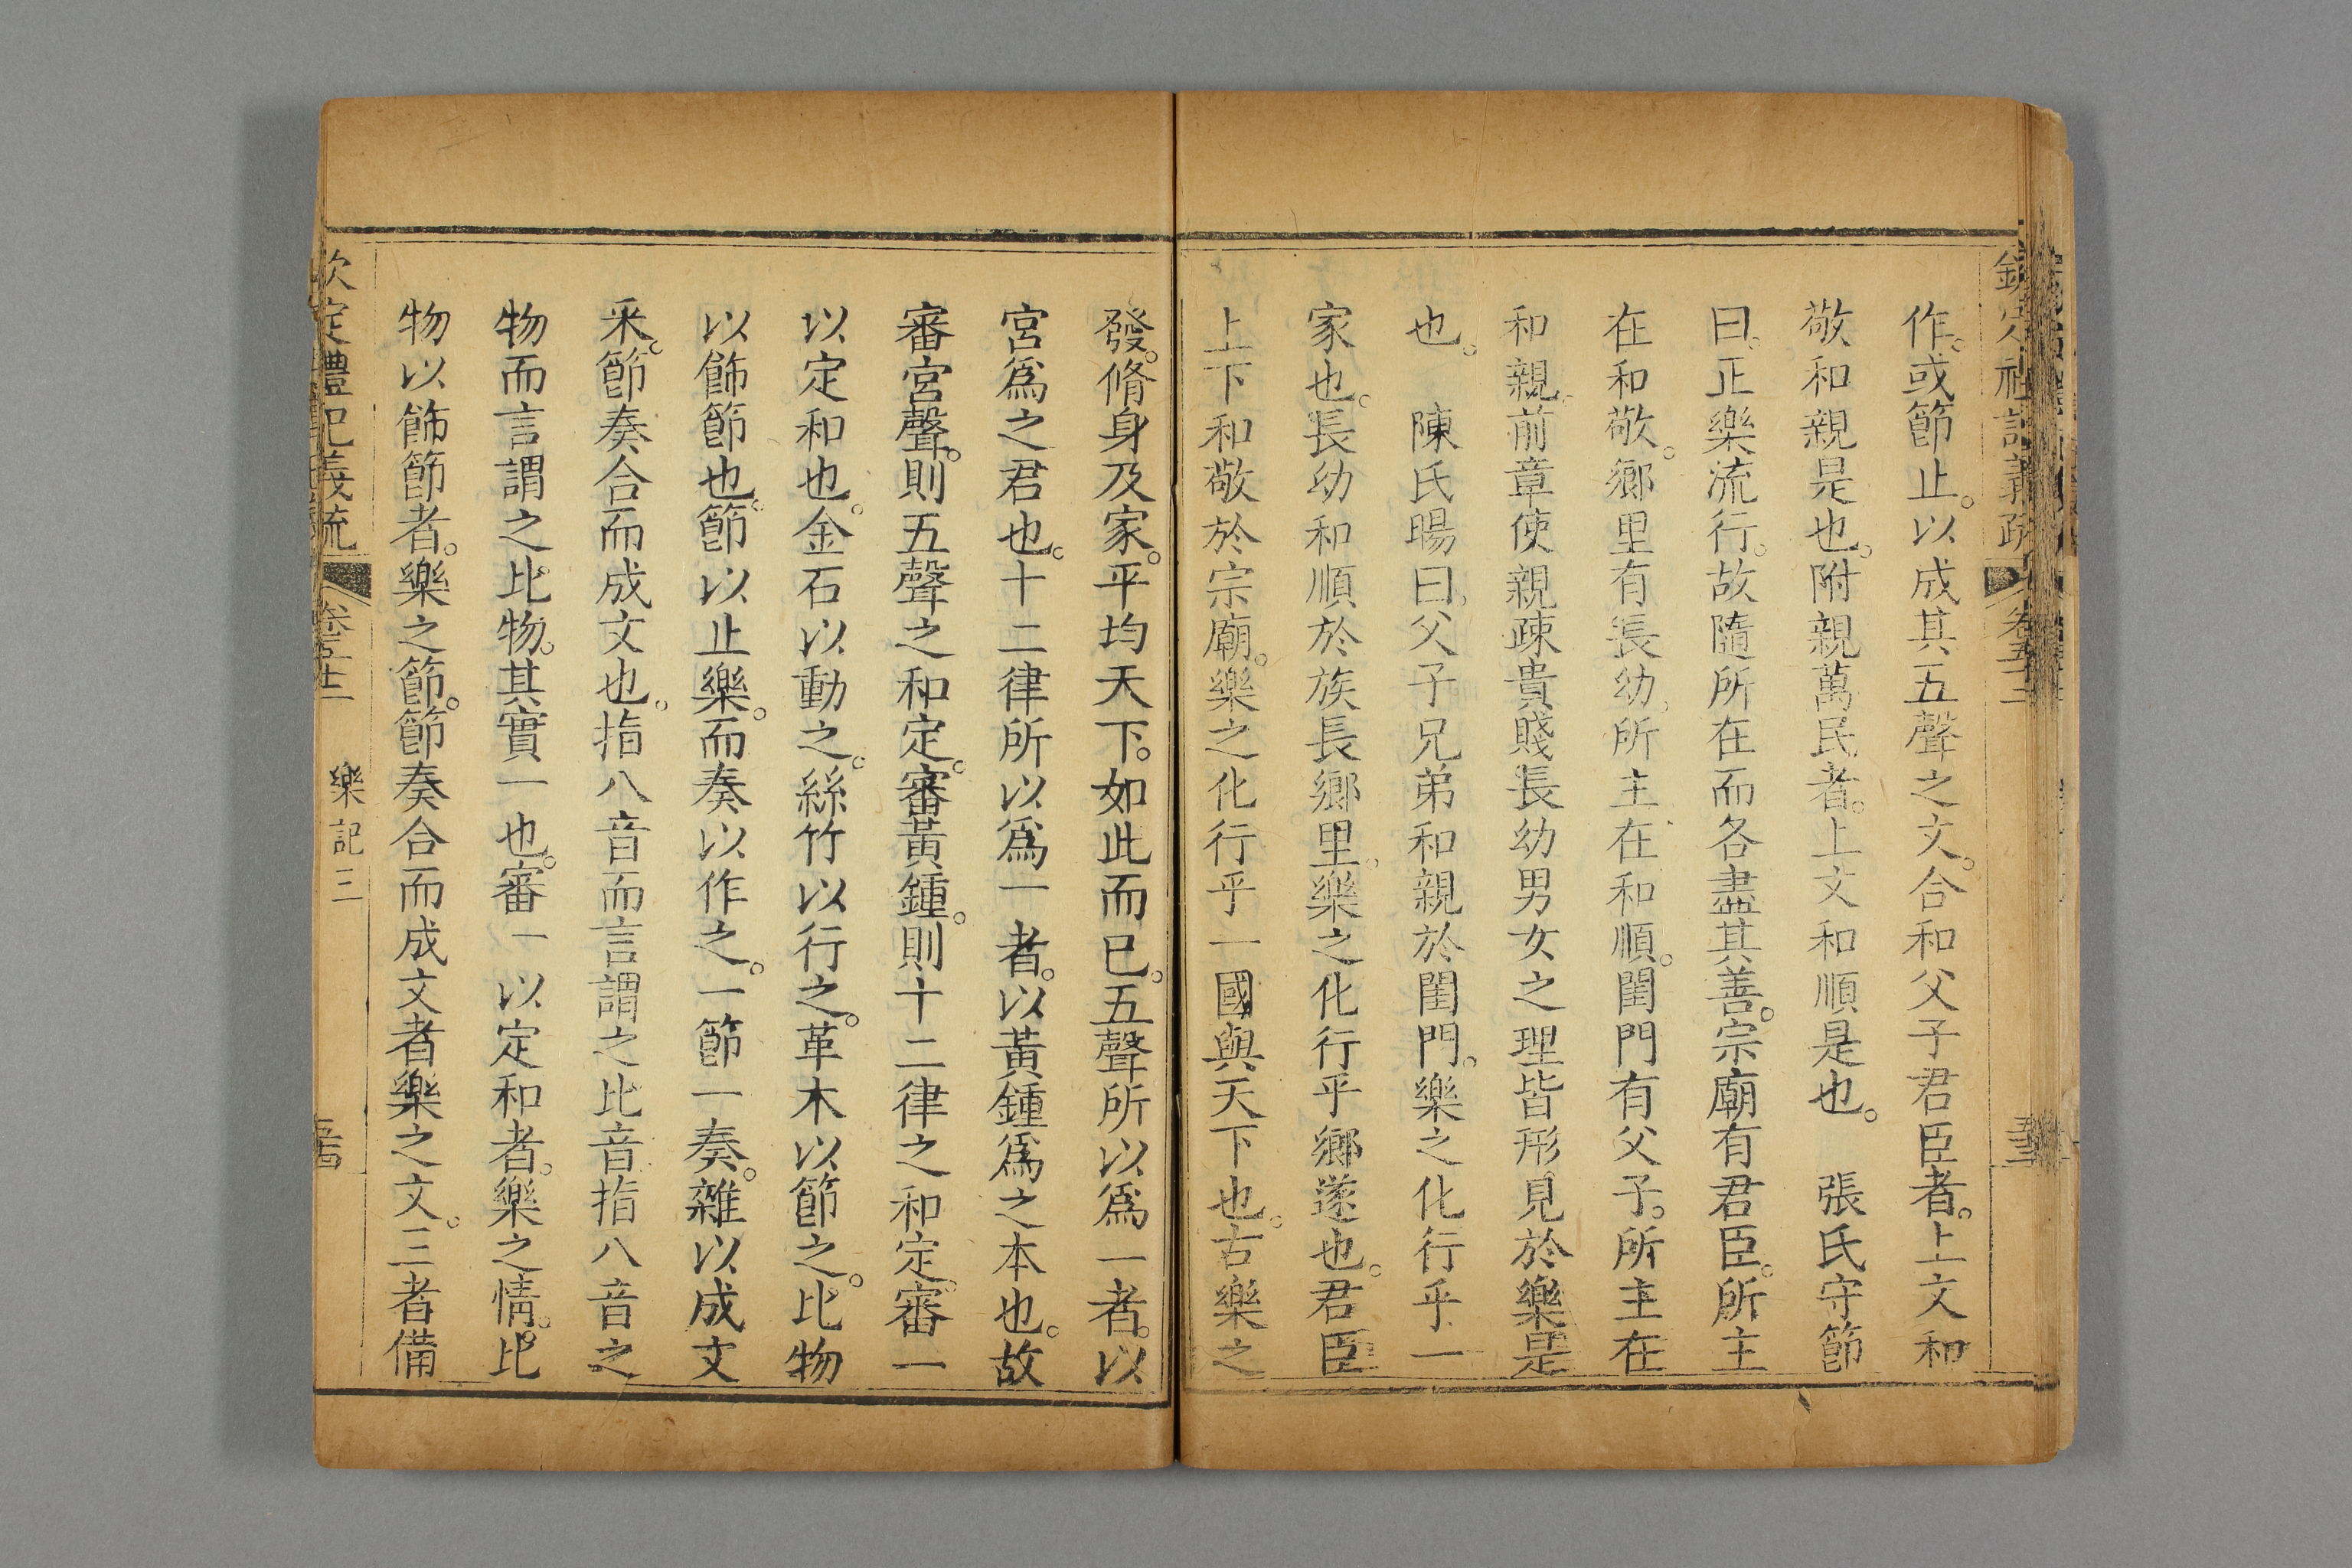 作。或節止。以成其五聲之文。合和父子君臣者。上文和
敬和親是也。附親萬民者。上文和順是也。　張氏守節
曰。正樂流行。故隨所在而各盡其善。宗廟有君臣。所主
在和敬。鄉里有長幼。所主在和順。閨門有父子。所主在
和親。前章使親疎貴賤長幼男女之理皆形見於樂是
也。　陳氏暘曰。父子兄弟和親於閨門。樂之化行乎一
家也。長幼和順於族長鄉里。樂之化行乎鄉遂也。君臣
上下和敬於宗廟。樂之化行乎一國與天下也。古樂之
發。脩身及家。平均天下。如此而已。五聲所以爲一者。以
宮爲之君也。十二律所以爲一者。以黃鍾爲之本也。故
審宮聲。則五聲之和定。審黃鍾。則十二律之和定。審一
以定和也。金石以動之。絲竹以行之。革木以節之。比物
以飾節也。節以止樂。而奏以作之。一節一奏。雜以成文
采。節奏合而成文也。指八音而言謂之比音。指八音之
物而言謂之比物。其實一也。審一以定和者。樂之情。比
物以飾節者。樂之節。節奏合而成文者樂之文。三者備
欽定禮記義疏　卷五十二　樂記三